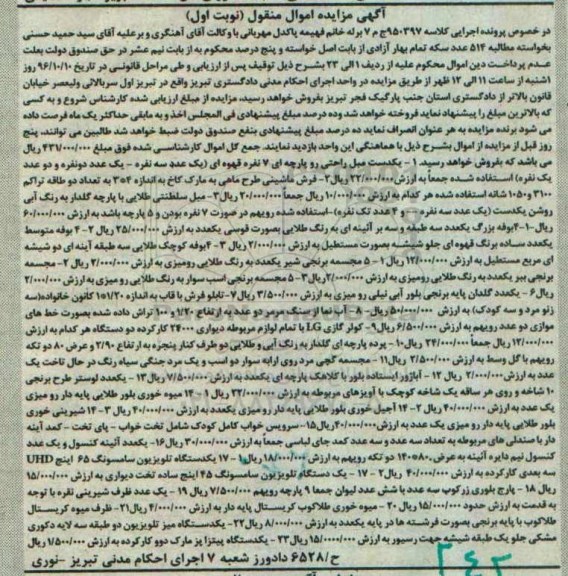 آگهی مزایده اموال منقول (نوبت اول)
در خصوص پرونده اجرایی کلاسه ۹۵۰۳۹۷ج م ۷ برله خانم فهیمه پاکدل مهربانی با وکالت آقای آهنگری و برعلیه آقای سید حمید حسنی
بخواسته مطالبه ۵۱۴ عدد سکه تمام بهار آزادی از بابت اصل خواسته و پنج درصد محکوم به از بابت نیم عشر در حق صندوق دولت بعلت
عدم پرداخت دین اموال محکوم علیه از ردیف ۱ الی ۲۳ بشرح ذیل توقیف پس از ارزیابی و طی مراحل قانونی در تاریخ ۹۶/۱۰/۱۰ روز
۱شنبه از ساعت ۱۱ الی ۱۲ ظهر از طریق مزایده در واحد اجرای احکام مدنی دادگستری تبریز واقع در تبریز اول سربالائی ولیعصر خیابان
قانون بالاتر از دادگستری استان جنب پارکینگ فجر تبریز بفروش خواهد رسید، مزایده از مبلغ ارزیابی شده کارشناس شروع و به کسی
که بالاترین مبلغ را پیشنهاد نماید فروخته خواهد شد وده درصد مبلغ پیشنهادی فی المجلس اخذ و به مابقی حداکثر یک ماه فرصت داده
می شود برنده مزایده به هر عنوان انصراف نماید ده درصد مبلغ پیشنهادی بنفع صندوق دولت ضبط خواهد شد طالبین می توانند، پنج
روز قبل از مزایده از اموال بشرح ذیل با هماهنگی این واحد بازدید نمایند. جمع کل اموال کارشناسی شده فوق مبلغ ۴۳۷/۰۰۰/۰۰۰ ریال
می باشد که بفروش خواهد رسید. ۱- یکدست مبل راحتی رو پارچه ای ۷ نفره قهوه ای (یک عدد سه نفره - یک عدد دونفره و دو عدد
یک نفره) استفاده شده جمعاً به ارزش ۲۲/۰۰۰/۰۰۰ ریال ۲- فرش ماشینی طرح ماهی به مارک کاخ به اندازه ۴*۳ به تعداد دو طاقه تراکم
۳۱۰۰ و ۱۰۵۰ شانه استفاده شده هر کدام به ارزش ۱۰/۰۰۰/۰۰۰ ریال جمعاً ۲۰/۰۰۰/۰۰۰ ریال ۳- مبل سلطنتی طلایی با پارچه گلدار به رنگ آبی
روشن یکدست (یک عدد سه نفره و ۴ عدد تک نفره) -استفاده شده رویهم در صورت ۷ نفره بودن و ۵ پارچه باشد به ارزش ۶۰/۰۰۰/۰۰۰
ریال ۱-۴ بوفه بزرگ یکعدد سه طبقه و سه بر آئینه ای به رنگ طلایی بصورت قوسی یکعدد به ارزش ۲۵/۰۰۰/۰۰۰ ریال ۲- ۴ بوفه متوسط
یکعدد ساده برنگ قهوه ای جلو شیشه بصورت مستطیل به ارزش ۲/۰۰۰/۰۰۰ ریال ۳- ۴ بوفه کوچک طلایی سه طبقه آینه ای دو شیشه
ای مربع مستطیل به ارزش ۱۲/۰۰۰/۰۰۰ ریال ۱- ۵ مجسمه برنجی شیر یکعدد به رنگ طلایی رومیزی به ارزش ۲/۰۰۰/۰۰۰ ریال ۲- مجسمه
برنجی ببر یکعدد به رنگ طلایی رومیزی به ارزش ۲/۰۰۰/۰۰۰ ریال ۳- ۵ مجسمه برنجی اسب سوار به رنگ طلایی رو میزی به ارزش ۲/۰۰۰/۰۰۰
ریال ۶- یکعدد گلدان پایه برنجی بلور آبی نیلی رو میزی به ارزش ۳/۵۰۰/۰۰۰ ریال ۷- تابلو فرش با قاب به اندازه ۱/۲۰*۱ کانون خانواده(سه
زنو مرد و سه کودک) به ارزش ۵۰/۰۰۰/۰۰۰ ریال ۸- آب نما از سنگ مرمر دو عدد به ارتفاع ۱/۲۰ و ۱۰۰ تراش داده شده بصورت خط های
موازی دو عدد رویهم به ارزش ۶/۵۰۰/۰۰۰ ریال ۹- کولر گازی LG با تمام لوازم مربوطه دیواری ۲۴۰۰۰ کارکرده دو دستگاه هر کدام به ارزش
۱۲/۰۰۰/۰۰۰ ریال جمعاً ۲۴/۰۰۰/۰۰۰ ریال ۱۰- پرده پارچه ای گلدار به رنگ آبی و طلایی دو طرف کنار پنجره به ارتفاع ۲/۹۰ و عرض ۸۰ دو تکه
رویهم با گل وسط به ارزش ۲/۵۰۰/۰۰۰ ریال ۱۱- مجسمه گچی مرد روی ارابه سوار دو اسب و یک مرد جنگی سیاه رنگ در حال تاخت یک
عدد به ارزش ۲/۰۰۰/۰۰۰ ریال ۱۲- آباژور ایستاده بلور با کلاهک پارچه ای یکعدد به ارزش ۷/۵۰۰/۰۰۰ ریال ۱۳- یکعدد لوستر طرح برنجی
۱۰ شاخه و روی هر ساقه یک شاخه کوچک با آویزهای مربوطه به ارزش ۲۲/۰۰۰/۰۰۰ ریال ۱- ۱۴ میوه خوری بلور طلایی پایه دار رو میزی
یک عدد به ارزش ۴۰/۰۰۰/۰۰۰ ریال ۲- ۱۴ آجیل خوری بلور طلایی پایه دار رو میزی یکعدد به ارزش ۴۰/۰۰۰/۰۰۰ ریال ۳- ۱۴ شیرینی خوری
بلور طلایی پایه دار رو میزی یک عدد به ارزش ۴۰/۰۰۰/۰۰۰ ریال ۱۵-سرویس خواب کامل کودک شامل تخت خواب - پای تخت - کمد آینه
دار با صندلی های مربوطه به تعداد سه عدد و سه عدد کمد جای لباسی جمعاً به ارزش ۳۰/۰۰۰/۰۰۰ ریال ۱۶- یکعدد آئینه کنسول و یک عدد
کنسول نیم دایره آئینه به عرض ۸۰*۱۴۰ دو تکه رویهم به ارزش ۱۸/۰۰۰/۰۰۰ ریال ۱- ۱۷ یکدستگاه تلویزیون سامسونگ ۶۵ اینچ UHD
سه بعدی کارکرده به ارزش ۴۰/۰۰۰/۰۰۰ ریال ۲- ۱۷ - یک دستگاه تلویزیون سامسونگ ۴۵ اینچ ساده تخت دیواری به ارزش ۱۵/۰۰۰/۰۰۰
ریال ۱۸- پارچ بلوری زرکوب سه عدد با شش عدد لیوان جمعاً ۹ پارچه رویهم ۷/۵۰۰/۰۰۰ ریال ۱۹- یک عدد ظرف شیرینی نقره با توجه
به قدمت به ارزش حدود ۱۵/۰۰۰/۰۰۰ ریال ۲۰- میوه خوری طلاکوب کریستال پایه دار به ارزش ۴/۰۰۰/۰۰۰ ریال ۲۱- ظرف میوه کریستال
طلاکوب با پایه برنجی بصورت فرشته ها در پایه یکعدد به ارزش ۸/۰۰۰/۰۰۰ ریال ۲۲- یکدستگاه میز تلویزیون دو طبقه سه لایه دکوری
مشکی جلو یک طبقه شیشه جهت رسیور به ارزش ۱۵/۰۰۰/۰۰۰ ریال ۲۳- یکدستگاه پیتزا پز مارک دوو کارکرده به ارزش ۱/۵۰۰/۰۰۰ ریال
ح/۶۵۲۸ دادورز شعبه ۷ اجرای احکام مدنی تبریز -نوری
۲۴۲